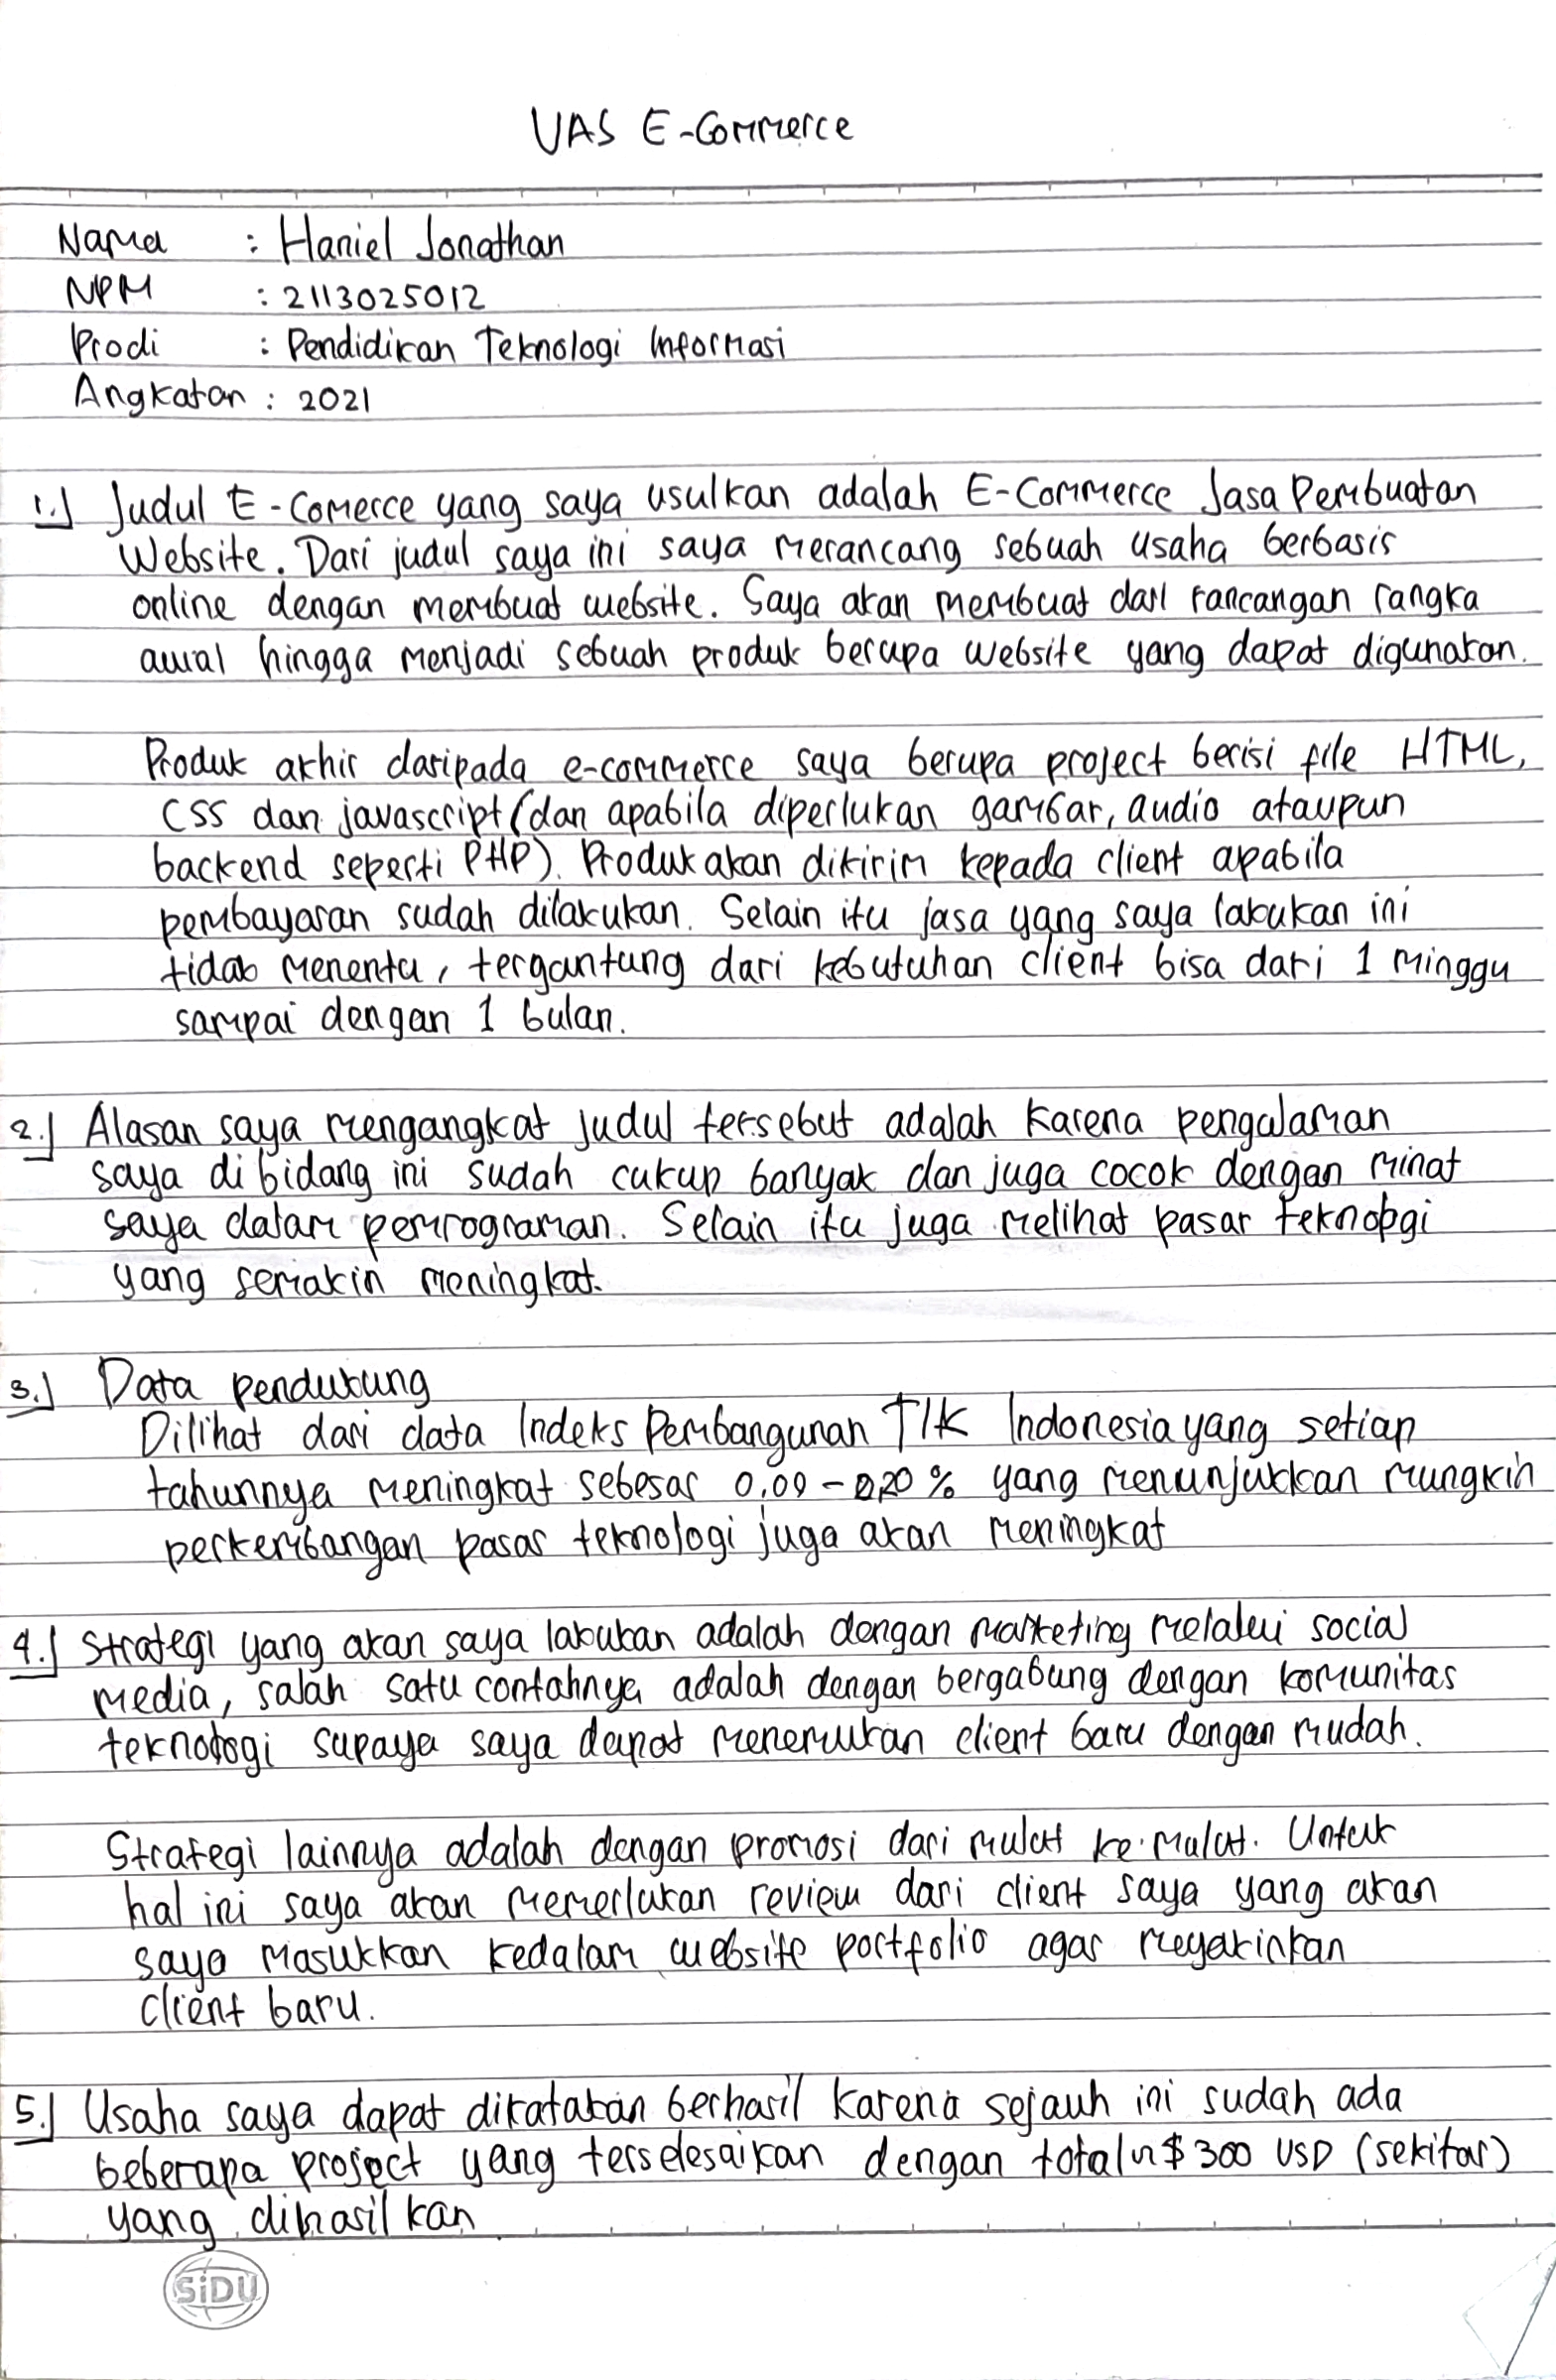 UAS E-Commerce
Nama : Haniel Jonathan
NPM : 2113025012
Prodi : Pendidikan Teknologi Informasi
Angkatan : 2021
1.) Judul E-Comerce yang saya usulkan adalah E-Commerce Jasa Pembuatan
Website. Dari judul saya ini saya merancang sebuah usaha berbasis
online dengan membuat website. Saya akan membuat dari rancangan rangka
awal hingga menjadi sebuah produk berupa website yang dapat digunakan.
Produk akhir daripada e-commerce saya berupa project berisi file HTML,
CSS dan javascript (dan apabila diperlukan gambar, audio ataupun
backend seperti PHP). Produk akan dikirim kepada client apabila
pembayaran sudah dilakukan. Selain itu jasa yang saya lakukan ini
tidak menentu, tergantung dari kebutuhan client bisa dari 1 minggu
sampai dengan 1 bulan.
2.) Alasan saya mengangkat judul tersebut adalah karena pengalaman
saya di bidang ini sudah cukup banyak dan juga cocok dengan minat
saya dalam pemrograman. Selain itu juga melihat pasar teknologi
yang semakin meningkat.
3.) Data pendukung
Dilihat dari data Indeks Pembangunan TIK Indonesia yang setiap
tahunnya meningkat sebesar 0,09 - 0,20 % yang menunjukkan mungkin
perkembangan pasar teknologi juga akan meningkat
4.) Strategi yang akan saya lakukan adalah dengan marketing melalui social
media, salah satu contohnya adalah dengan bergabung dengan komunitas
teknologi supaya saya dapat menemukan client baru dengan mudah.
Strategi lainnya adalah dengan promosi dari mulut ke mulut. Untuk
hal ini saya akan memerlukan review dari client saya yang akan
saya masukkan kedalam website portfolio agar meyakinkan
client baru.
5.) Usaha saya dapat dikatakan berhasil karena sejauh ini sudah ada
beberapa project yang terselesaikan dengan total $ 300 USD (sekitar)
yang dihasilkan
SiDU